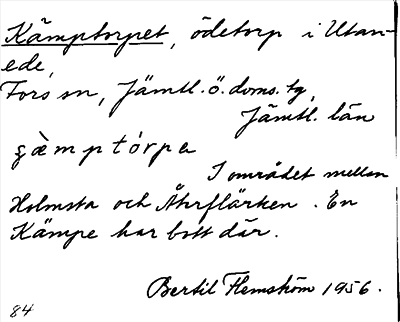 Kämptorpet, ödetorp i Utan-
ede,
Fors sn, Jämtl. ö. doms. tg,
Jämtl. län
çæ̀mptórpa
I området mellan
Holmsta och Återflärken. En
Kämpe har bott där.
Bertil Flemström 1956.
84